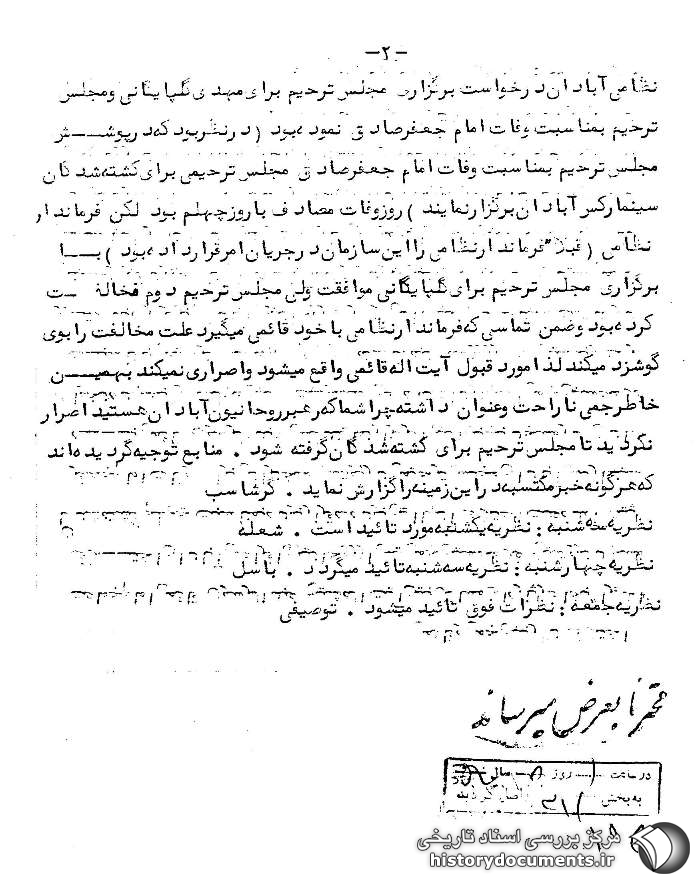 -۲-
نظامی آبادان درخواست برگزاری مجلس ترحیم برای مهدی گلپایگانی و مجلس
ترحیم بمناسبت وفات امام جعفر صادق نموده بود (در نظر بود که در پوشــش
مجلس ترحیم بمناسبت وفات امام جعفر صادق مجلس ترحیمی برای کشته شدگان
سینما رکس آبادان برگزار نمایند) روز وفات مصادف با روز چهلم بود لکن فرماندار
نظامی (قبلا" فرماندار نظامی را این سازمان در جریان امر قرار داده بود) بــا
برگزاری مجلس ترحیم برای گلپایگانی موافقت ولی مجلس ترحیم دوم مخالفــت
کرده بود و ضمن تماسی که فرماندار نظامی با خود قائمی میگیرد علت مخالفت را بوی
گوشزد میکند لذا مورد قبول آیت اله قائمی واقع میشود و اصراری نمیکند بهمیــن
خاطر جمعی ناراحت و عنوان داشته چرا شما که رهبر روحانیون آبادان هستید اصرار
نکردید تا مجلس ترحیم برای کشته شدگان گرفته شود . منابع توجیه گردیده اند
که هر گونه خبر مکتسبه در این زمینه را گزارش نماید . گرشاسب
نظریه سه شنبه : نظریه یکشنبه مورد تائید است . شعله
نظریه چهارشنبه : نظریه سه شنبه تائید میگردد . باسل
نظریه جمعه : نظرات فوق تائید میشود . توصیفی
محترما بعرض میرساند
در ساعت روز
به بخش ۳۱۲ واصل گردید
مرکز بررسی اسناد تاریخی
historydocuments.ir